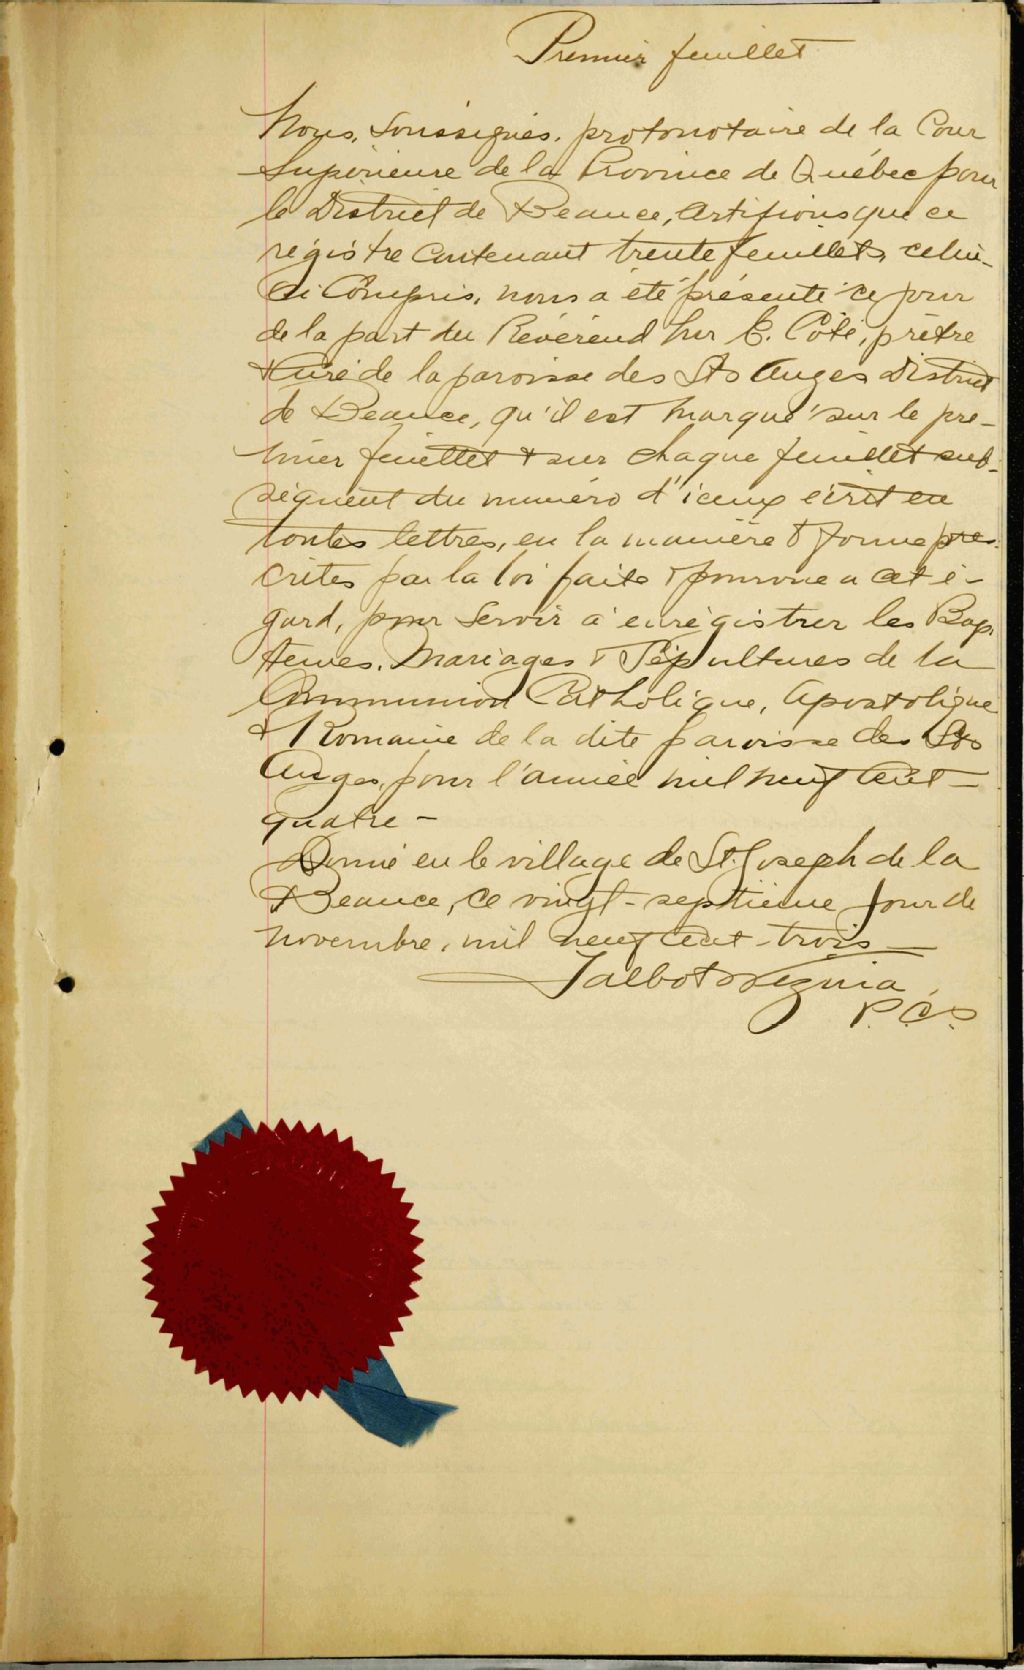 Premier feuillet
Nous, soussignés, protonotaire de la Cour
Supérieure de la Province de Québec pour
le District de Beauce, certifions que ce
régistre contenant trente feuillets, celui-
ci Compris, nous a été présenté ce jour
de la part du Révérend Mr E. Côté, prêtre
& Curé de la paroisse des Sts Anges District
de Beauce, qu'il est marqué sur le pre-
mier feuillet & sur chaque feuillet sub-
séquent du numéro d'iceux écrit en
toutes lettres, en la manière & forme pres-
crites par la loi faite & pourvue a cet é-
gard, pour servir à enrégistrer les Bap-
temes. Mariages & Sépultures de la
Communion Catholique, Apostolique
& Romaine de la dite paroisse des Sts
Anges, pour l'année mil neuf cent-
quatre -
Donné en le village de St. Joseph de la
Beauce, ce vingt-septième jour de
novembre, mil neuf cent-trois -
Talbot & Vézina
P.C.S